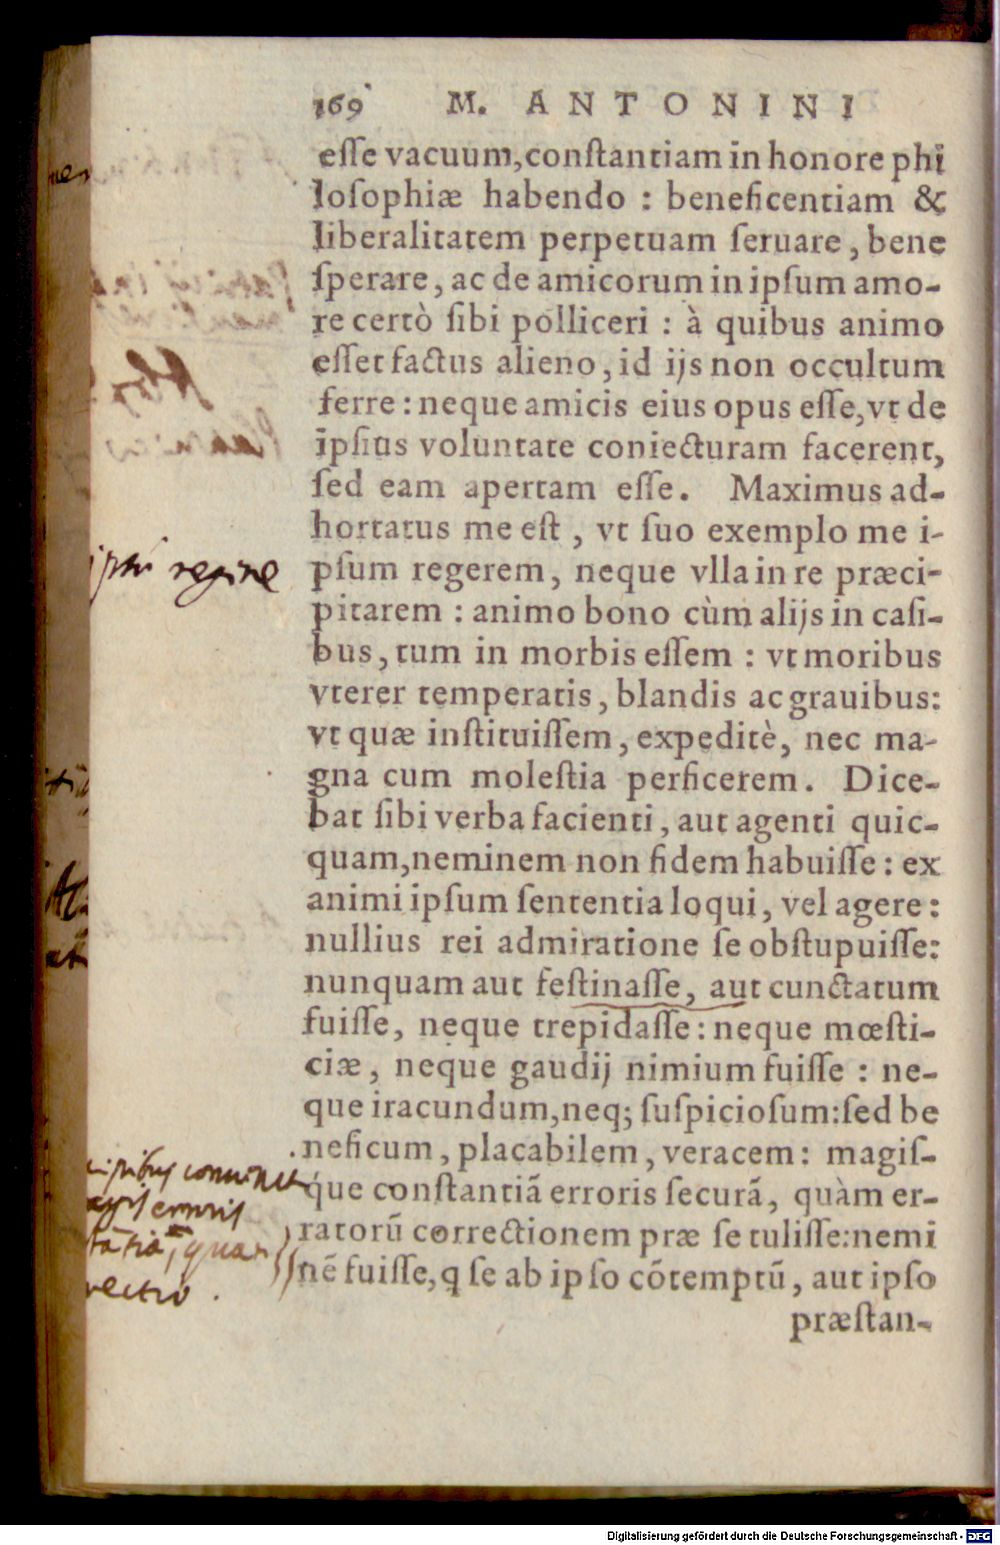 169 M. ANTONINI
eſſe vacuum, conſtantiam in honore phi
loſophiæ habendo : beneficentiam &
liberalitatem perpetuam ſeruare, bene
ſperare, ac de amicorum in ipſum amo-
re certò ſibi polliceri : à quibus animo
eſſet factus alieno, id ijs non occultum
ferre : neque amicis eius opus eſſe, vt de
ipſius voluntate coniecturam facerent,
ſed eam apertam eſſe. Maximus ad-
hortatus me eſt, vt ſuo exemplo me i-
ipſũ regere
pſum regerem, neque vlla in re præci-
pitarem : animo bono cùm alijs in caſi-
bus, tum in morbis eſſem : vt moribus
vterer temperatis, blandis ac grauibus:
vt quæ inſtituiſſem, expeditè, nec ma-
gna cum moleſtia perficerem. Dice-
bat ſibi verba facienti, aut agenti quic-
quam, neminem non fidem habuiſſe : ex
animi ipſum ſententia loqui, vel agere :
nullius rei admiratione ſe obſtupuiſſe:
nunquam aut feſtinaſſe, aut cunctatum
fuiſſe, neque trepidaſſe : neque mœſti-
ciæ, neque gaudij nimium fuiſſe : ne-
que iracundum, neq; ſuſpicioſum: ſed be
neficum, placabilem, veracem : magiſ-
que conſtantiã erroris ſecurã, quàm er-
ratorũ correctionem præ ſe tuliſſe: nemi
nẽ fuiſſe, q ſe ab ipſo cõtemptũ, aut ipſo
præſtan-
erroris
rectio.
Digitalisierung gefördert durch die Deutsche Forschungsgemeinschaft - DFG